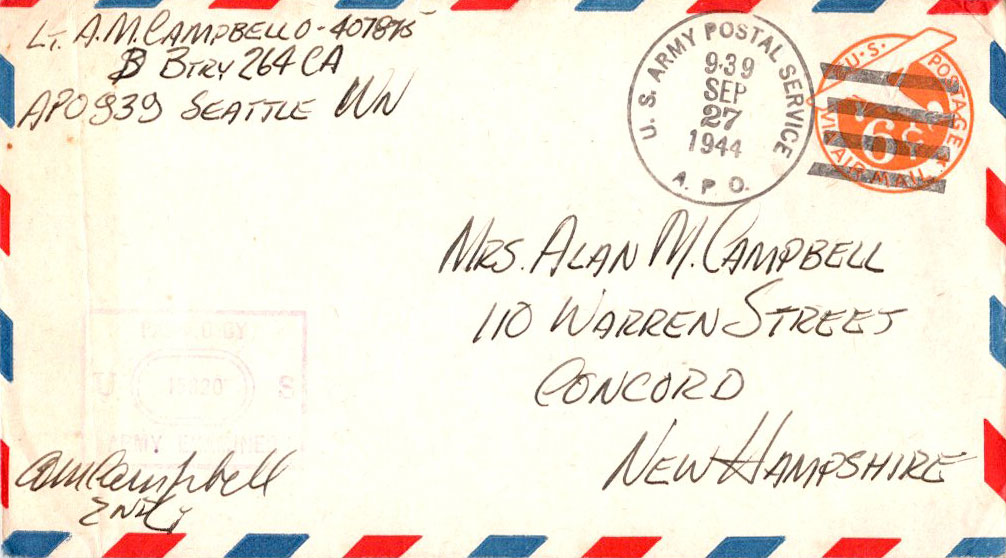 LT. A.M. CAMPBELL O-407875
B BTRY 264 CA
APO 939 SEATTLE WN
U. S. ARMY POSTAL SERVICE
939
SEP
27
1944
A. P. O.
U.S. POSTAGE
6¢
VIA AIR MAIL
MRS. ALAN M. CAMPBELL
110 WARREN STREET
CONCORD
NEW HAMPSHIRE
PASSED BY
U S
ARMY EXAMINER
AM Campbell